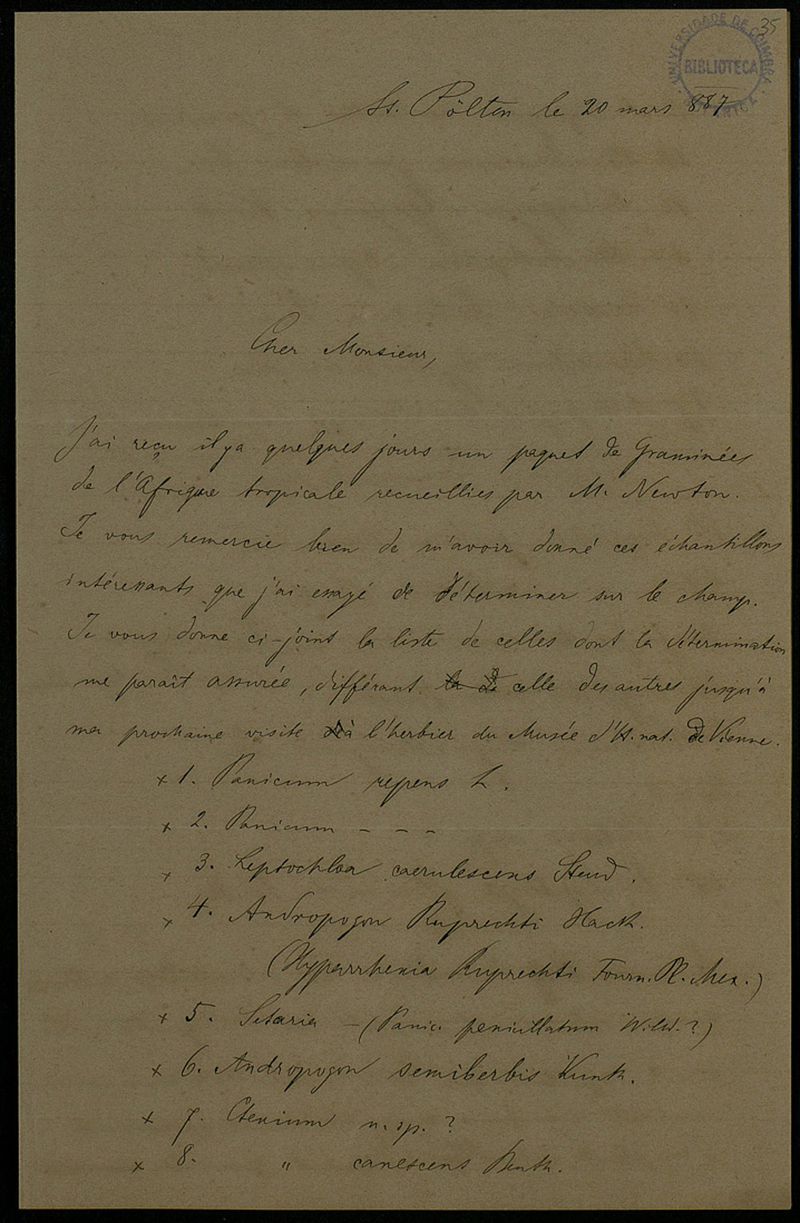 35
UNIVERSIDADE DE COIMBRA
BIBLIOTECA
BOTANICA
St. Pölten le 20 mars 887
Cher Monsieur,
J'ai reçu il y a quelques jours un paquet de Graminées
de l'Afrique tropicale recueillies par M. Newton.
Je vous remercie bien de m'avoir donné ces échantillons
intéressants que j'ai essayé de déterminer sur le champ.
Je vous donne ci-joint la liste de celles dont la détermination
me parait assurée, différant celle des autres jusqu'à
ma prochaine visite à l'herbier du Musée d'H. nat. de Vienne.
× 1. Panicum repens L.
× 2. Panicum - - -
× 3. Leptochloa caerulescens Steud.
× 4. Andropogon Ruprechti Hack.
(Hyparrhenia Ruprechti Fourn. Pl. Mex.)
× 5. Setaria - (Panic. penicillatum Willd.?)
× 6. Andropogon semiberbis Kunth.
× 7. Ctenium n. sp. ?
× 8. " canescens Benth.